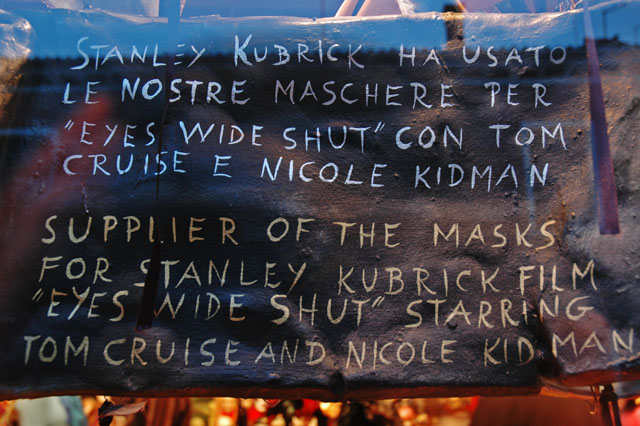 STANLEY KUBRICK HA USATO
LE NOSTRE MASCHERE PER
"EYES WIDE SHUT" CON TOM
CRUISE E NICOLE KIDMAN
SUPPLIER OF THE MASKS
FOR STANLEY KUBRICK FILM
"EYES WIDE SHUT" STARRING
TOM CRUISE AND NICOLE KIDMAN